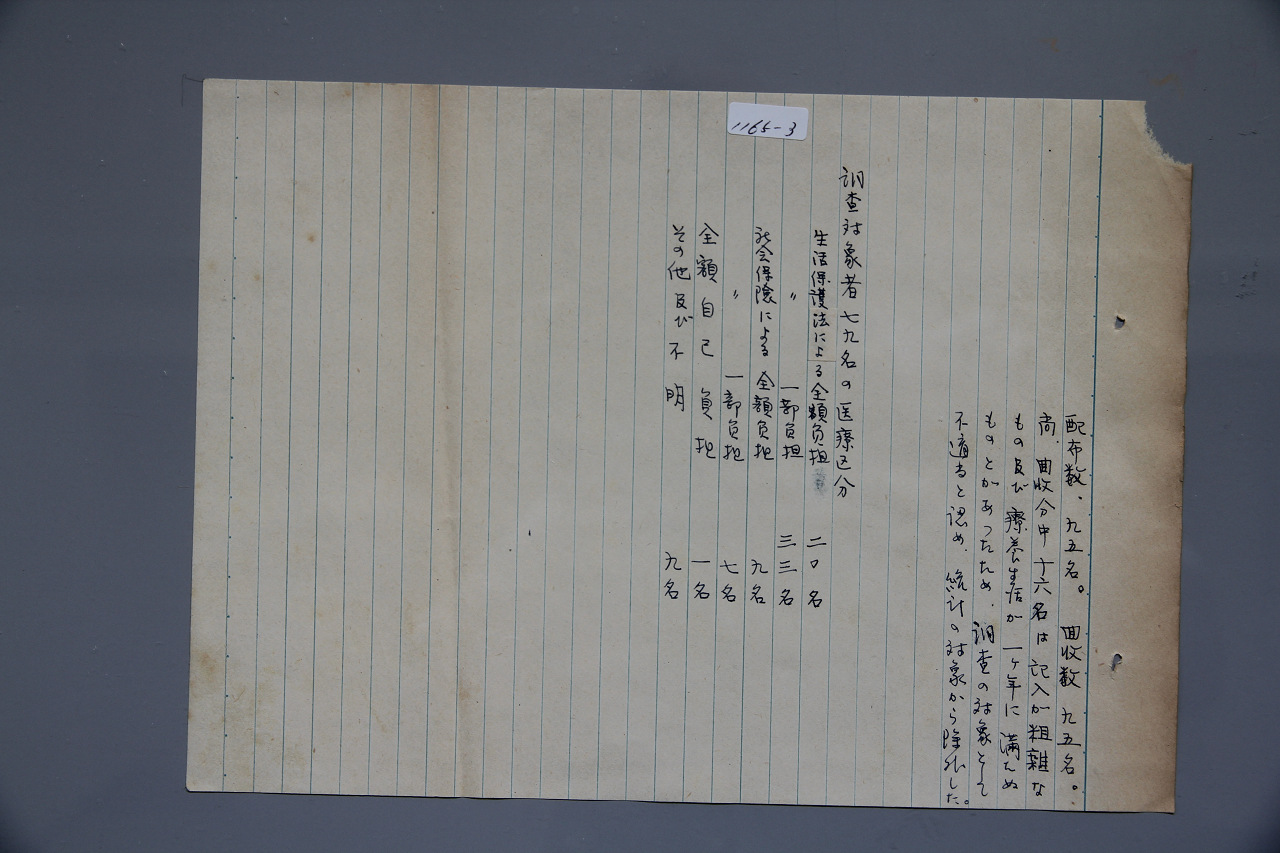 1165-3
配布数、九五名。 回収数 九五名。
尚、回収分中十六名は記入が粗雑な
もの及び療養生活が一ヶ年に満たぬ
ものとがあったため、調査の対象として
不適当と認め、統計の対象から除外した。
調査対象者七九名の医療区分
生活保護法による全額負担 二〇名
〃 一部負担 三三名
社会保険による 全額負担 九名
〃 一部負担 七名
全額自己負担 一名
その他及び不明 九名